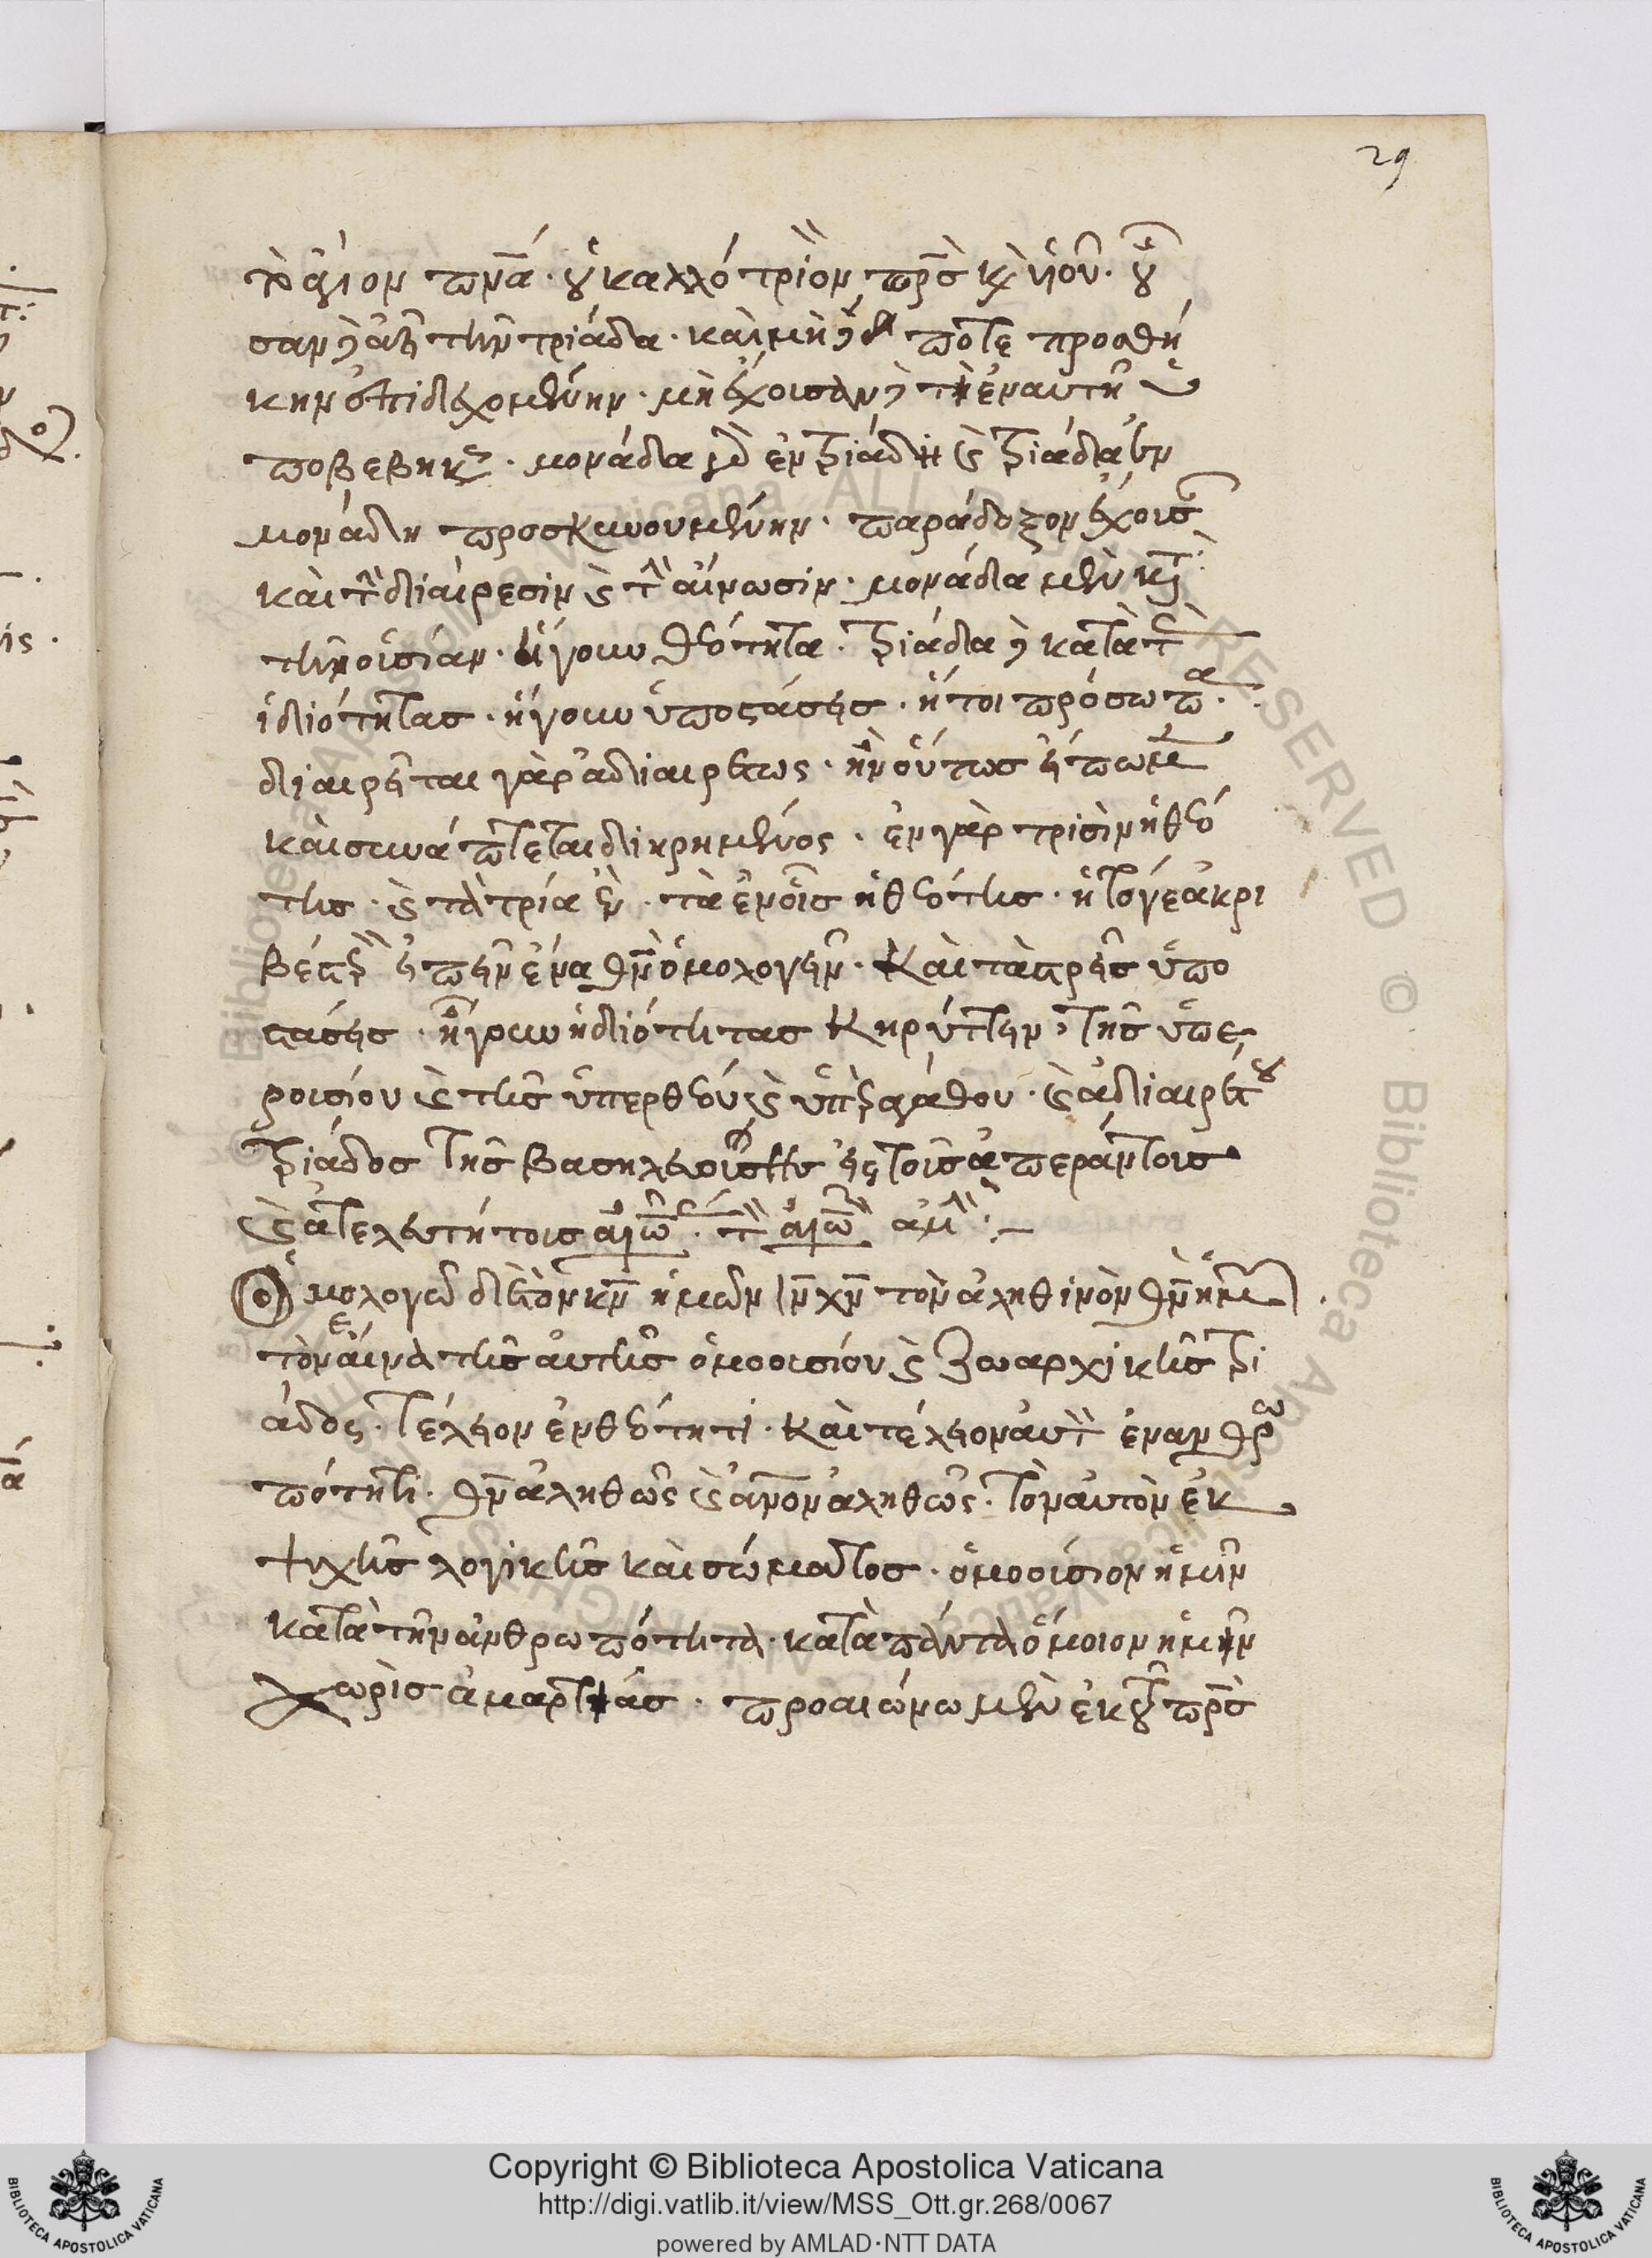 29
τὸ ἅγιον πνᾶ. οὐκ ἀλλότριον πρ̅ς κ̀ υἱοῦ. οὖ
σαν δὲ ἀεὶ τὴν τριάδα. καὶ μὴ δέ ποτε προσθή
κην ἐπιδεχομένην. μὴ ἔχουσαν δὲ τι ἐν αυτῆ ὑ
ποβεβηκὸς. μονάδα δὲ ἐν τριάδη καὶ τριάδα ἐν
μονάδη προσκυνουμένην. παράδοξον ἔχουσαν
καὶ τὴν διαίρεσιν καὶ τὴν αἵνωσιν. μονάδα μὲν κατὰ
τὴν οὐσίαν. εἴγουν θεότητα. τριάδα δὲ κατὰ τὰς
ἰδιότητας. ἤγουν ὑποστάσεις. ἤτοι πρόσωπα.
διαιρεῖται γὰρ ἀδιαιρέτως. ἢν οὕτως εἴπωμεν
καὶ συνάπτεται διηρημένος. ἐν γὰρ τρισὶν ἡ θεό
της. καὶ τὰ τρία ἓν. τὰ ἐν οἷς ἡ θεότης. ἢ τόγε ἀκρι
βέστερον εἰπεῖν ἕνα θν̅ ὁμολογεῖν. Καὶ τὰς τρεῖς ὑπο
στάσεις. ἤγουν ἡδιότητας Κηρύττειν, τῆς ὑπε
ρουσίου καὶ τῆς ὑπερθέου καὶ ὑπεραγάθου. καὶ ἀδιαιρέτου
Τριάδος τῆς βασηλευούσης εἰς τοὺς ἀπεράντους
καὶ ἀτελευτήτους αἰῶνας. τῶν αἰώνων ἀμήν:—
Ὁμολογῶ δὲ τὸν κν̅ ἡμῶν ιν̅ χν̅ τὸν ἀληθινὸν θν̅ ἡμῶν.
τὸν αἵνα τῆς αὐτῆς ὁμοουσίου καὶ ζωαρχικῆς τρι
άδος. Τέλειον ἐν θεότητι. Καὶ τέλειον αὐτὸν ἐν ἀνθρω
πότητι. θν̅ ἀληθῶς καὶ ἄνον ἀληθῶς. τὸν αὐτὸν ἐκ
ψυχῆς λογικῆς καὶ σώματος. ὁμοούσιον ἡμῖν
κατὰ τὴν ἀνθρωπότητα. κατὰ πάντα ὅμοιον ἡμῖν
χωρὶς ἁμαρτίας. προαιώνω μὲν ἐκ τοῦ πρ̅ς
Copyright © Biblioteca Apostolica Vaticana
http://digi.vatlib.it/view/MSS_Ott.gr.268/0067
powered by AMLAD·NTT DATA